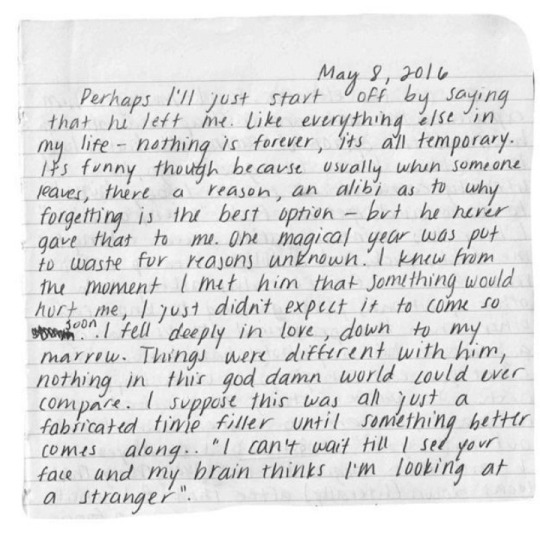 May 8, 2016
Perhaps I'll just start off by saying
that he left me. Like everything else in
my life - nothing is forever, its all temporary.
It's funny though because usually when someone
leaves, there a reason, an alibi as to why
forgetting is the best option - but he never
gave that to me. One magical year was put
to waste for reasons unknown. I knew from
the moment I met him that something would
hurt me, I just didn't expect it to come so
soon. I fell deeply in love, down to my
marrow. Things were different with him,
nothing in this god damn world could ever
compare. I suppose this was all just a
fabricated time filler until something better
comes along.. "I can't wait till I see your
face and my brain thinks I'm looking at
a stranger".